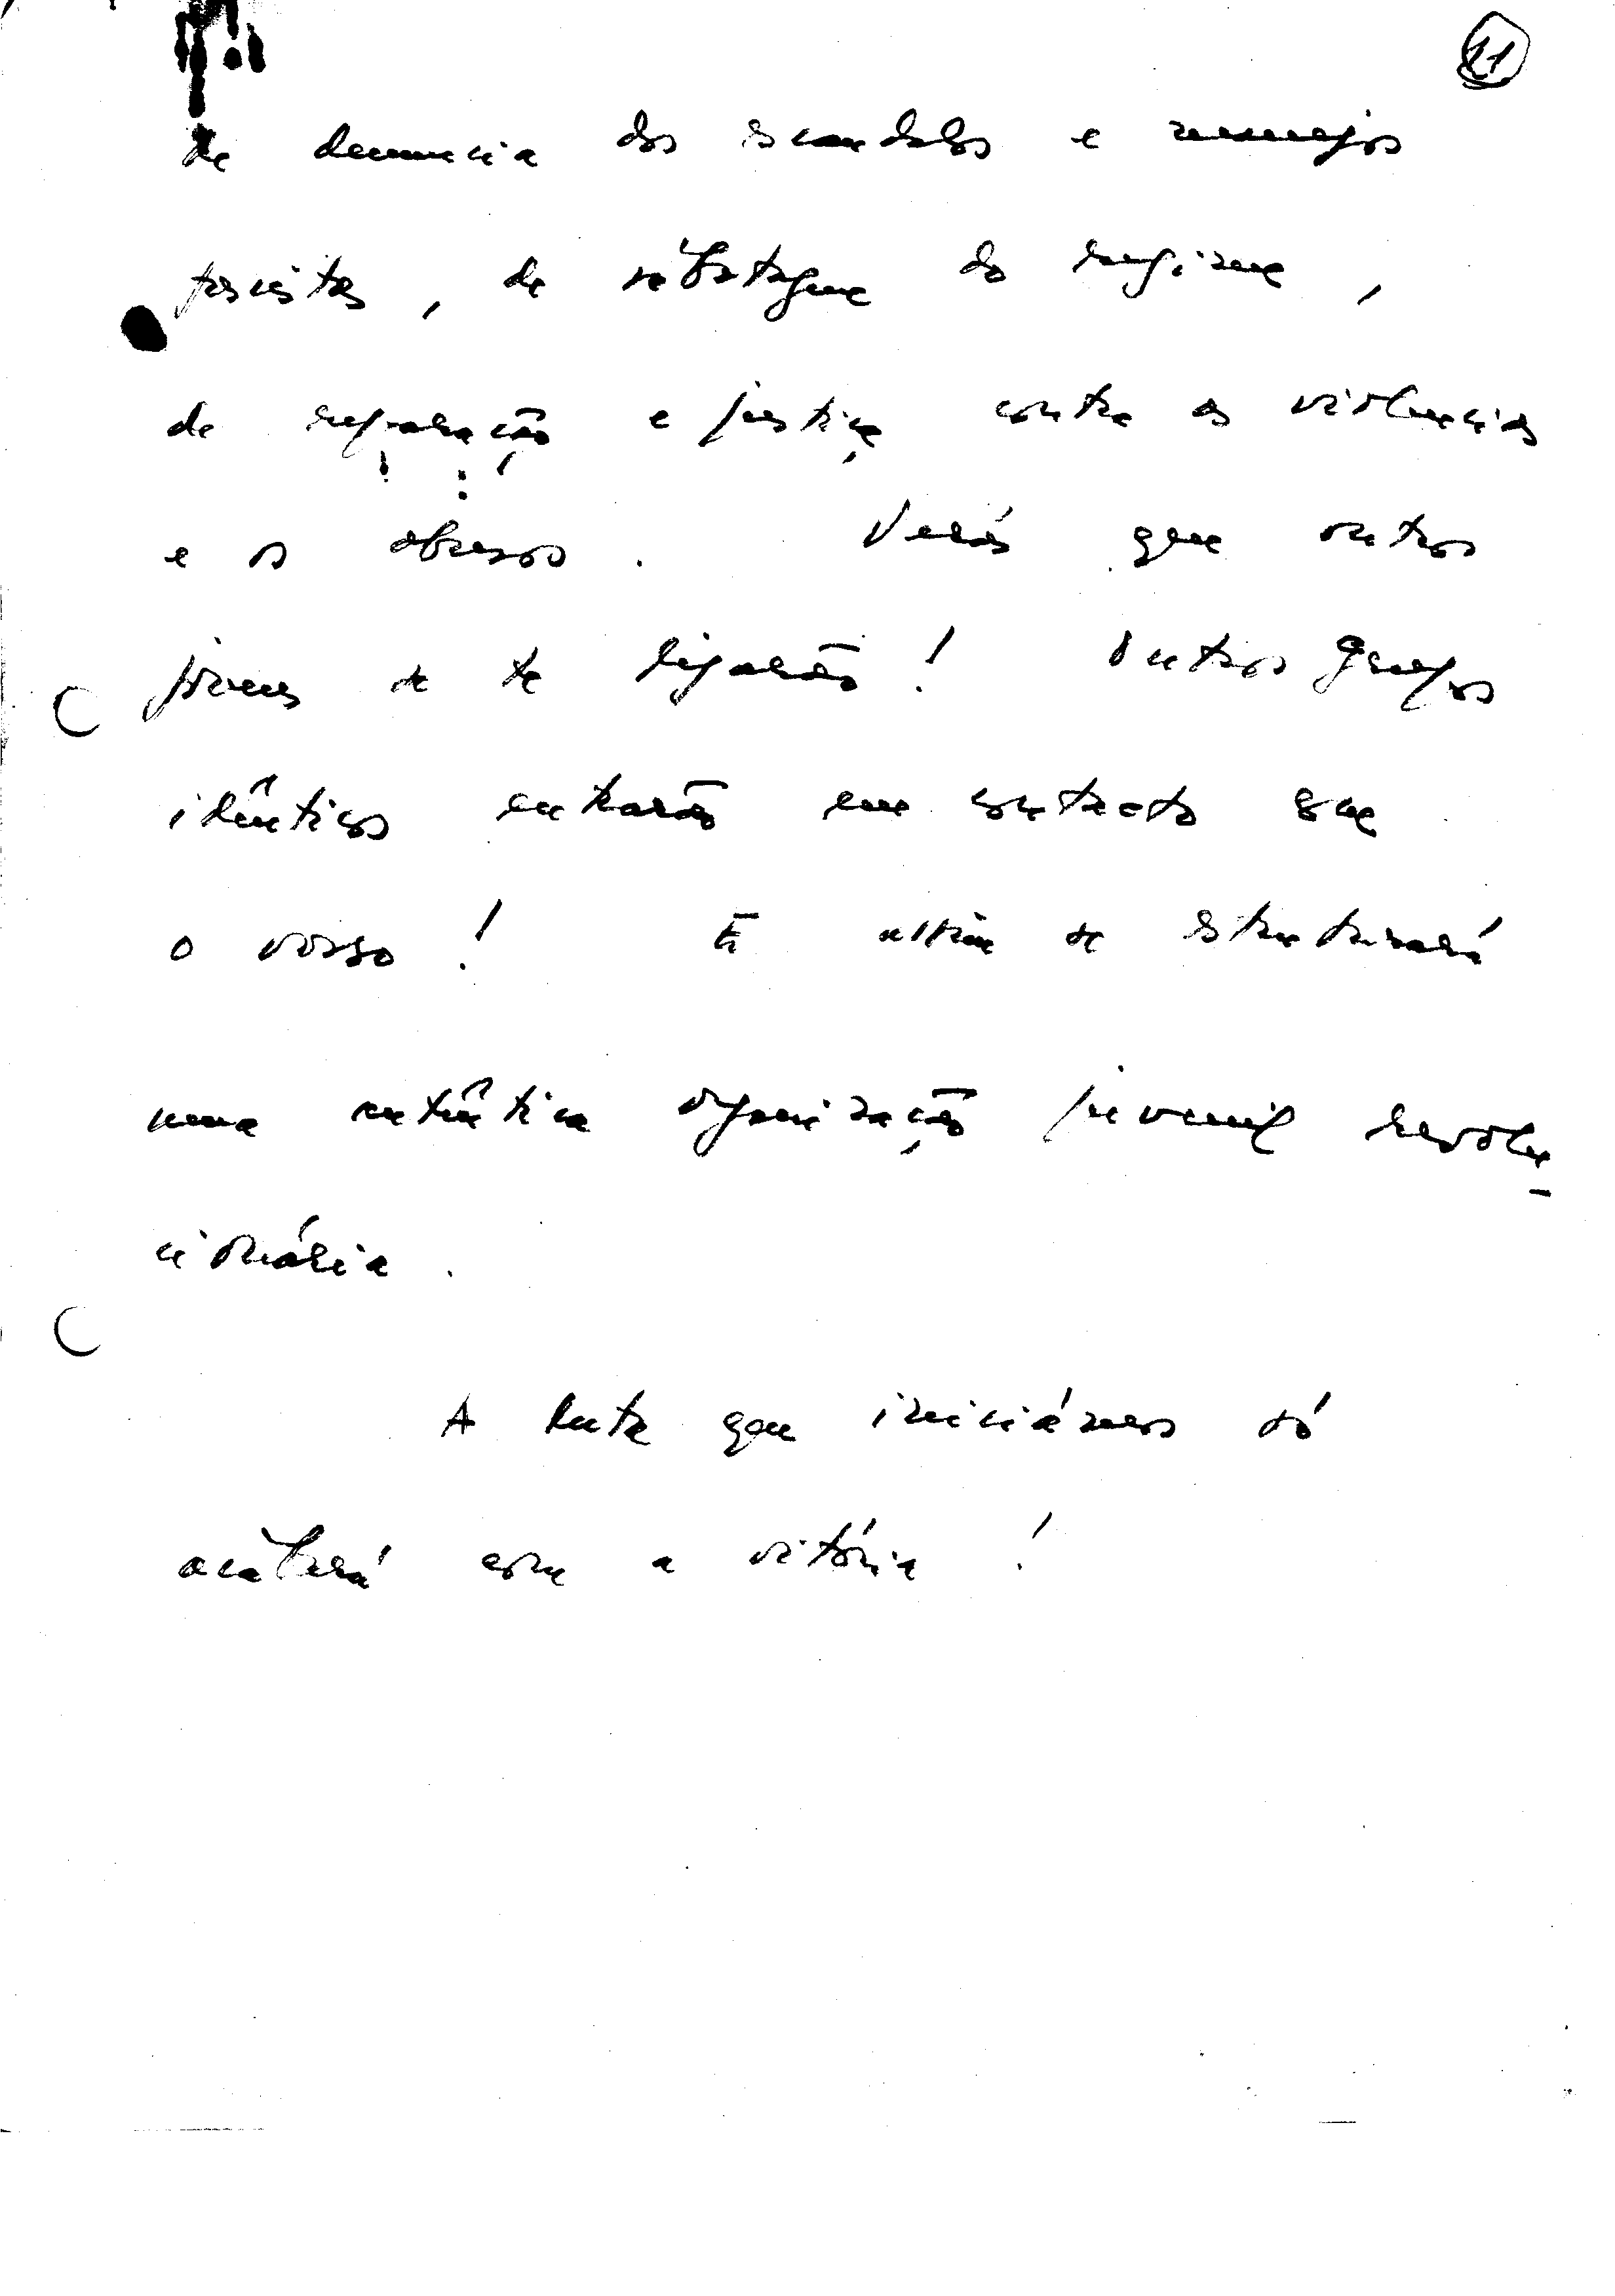 21
de denuncia dos escandalos e manejos
fascistas, de sabotagem do regime,
de reparação e justiça contra as violencias
e os abusos. Verás que outros
jovens se te ligarão! Outros grupos
idênticos entrarão em contacto com
o vosso! E assim se estruturará
uma autêntica organização juvenil revolu-
cionária.
A luta que iniciámos só
acabará com a vitória!